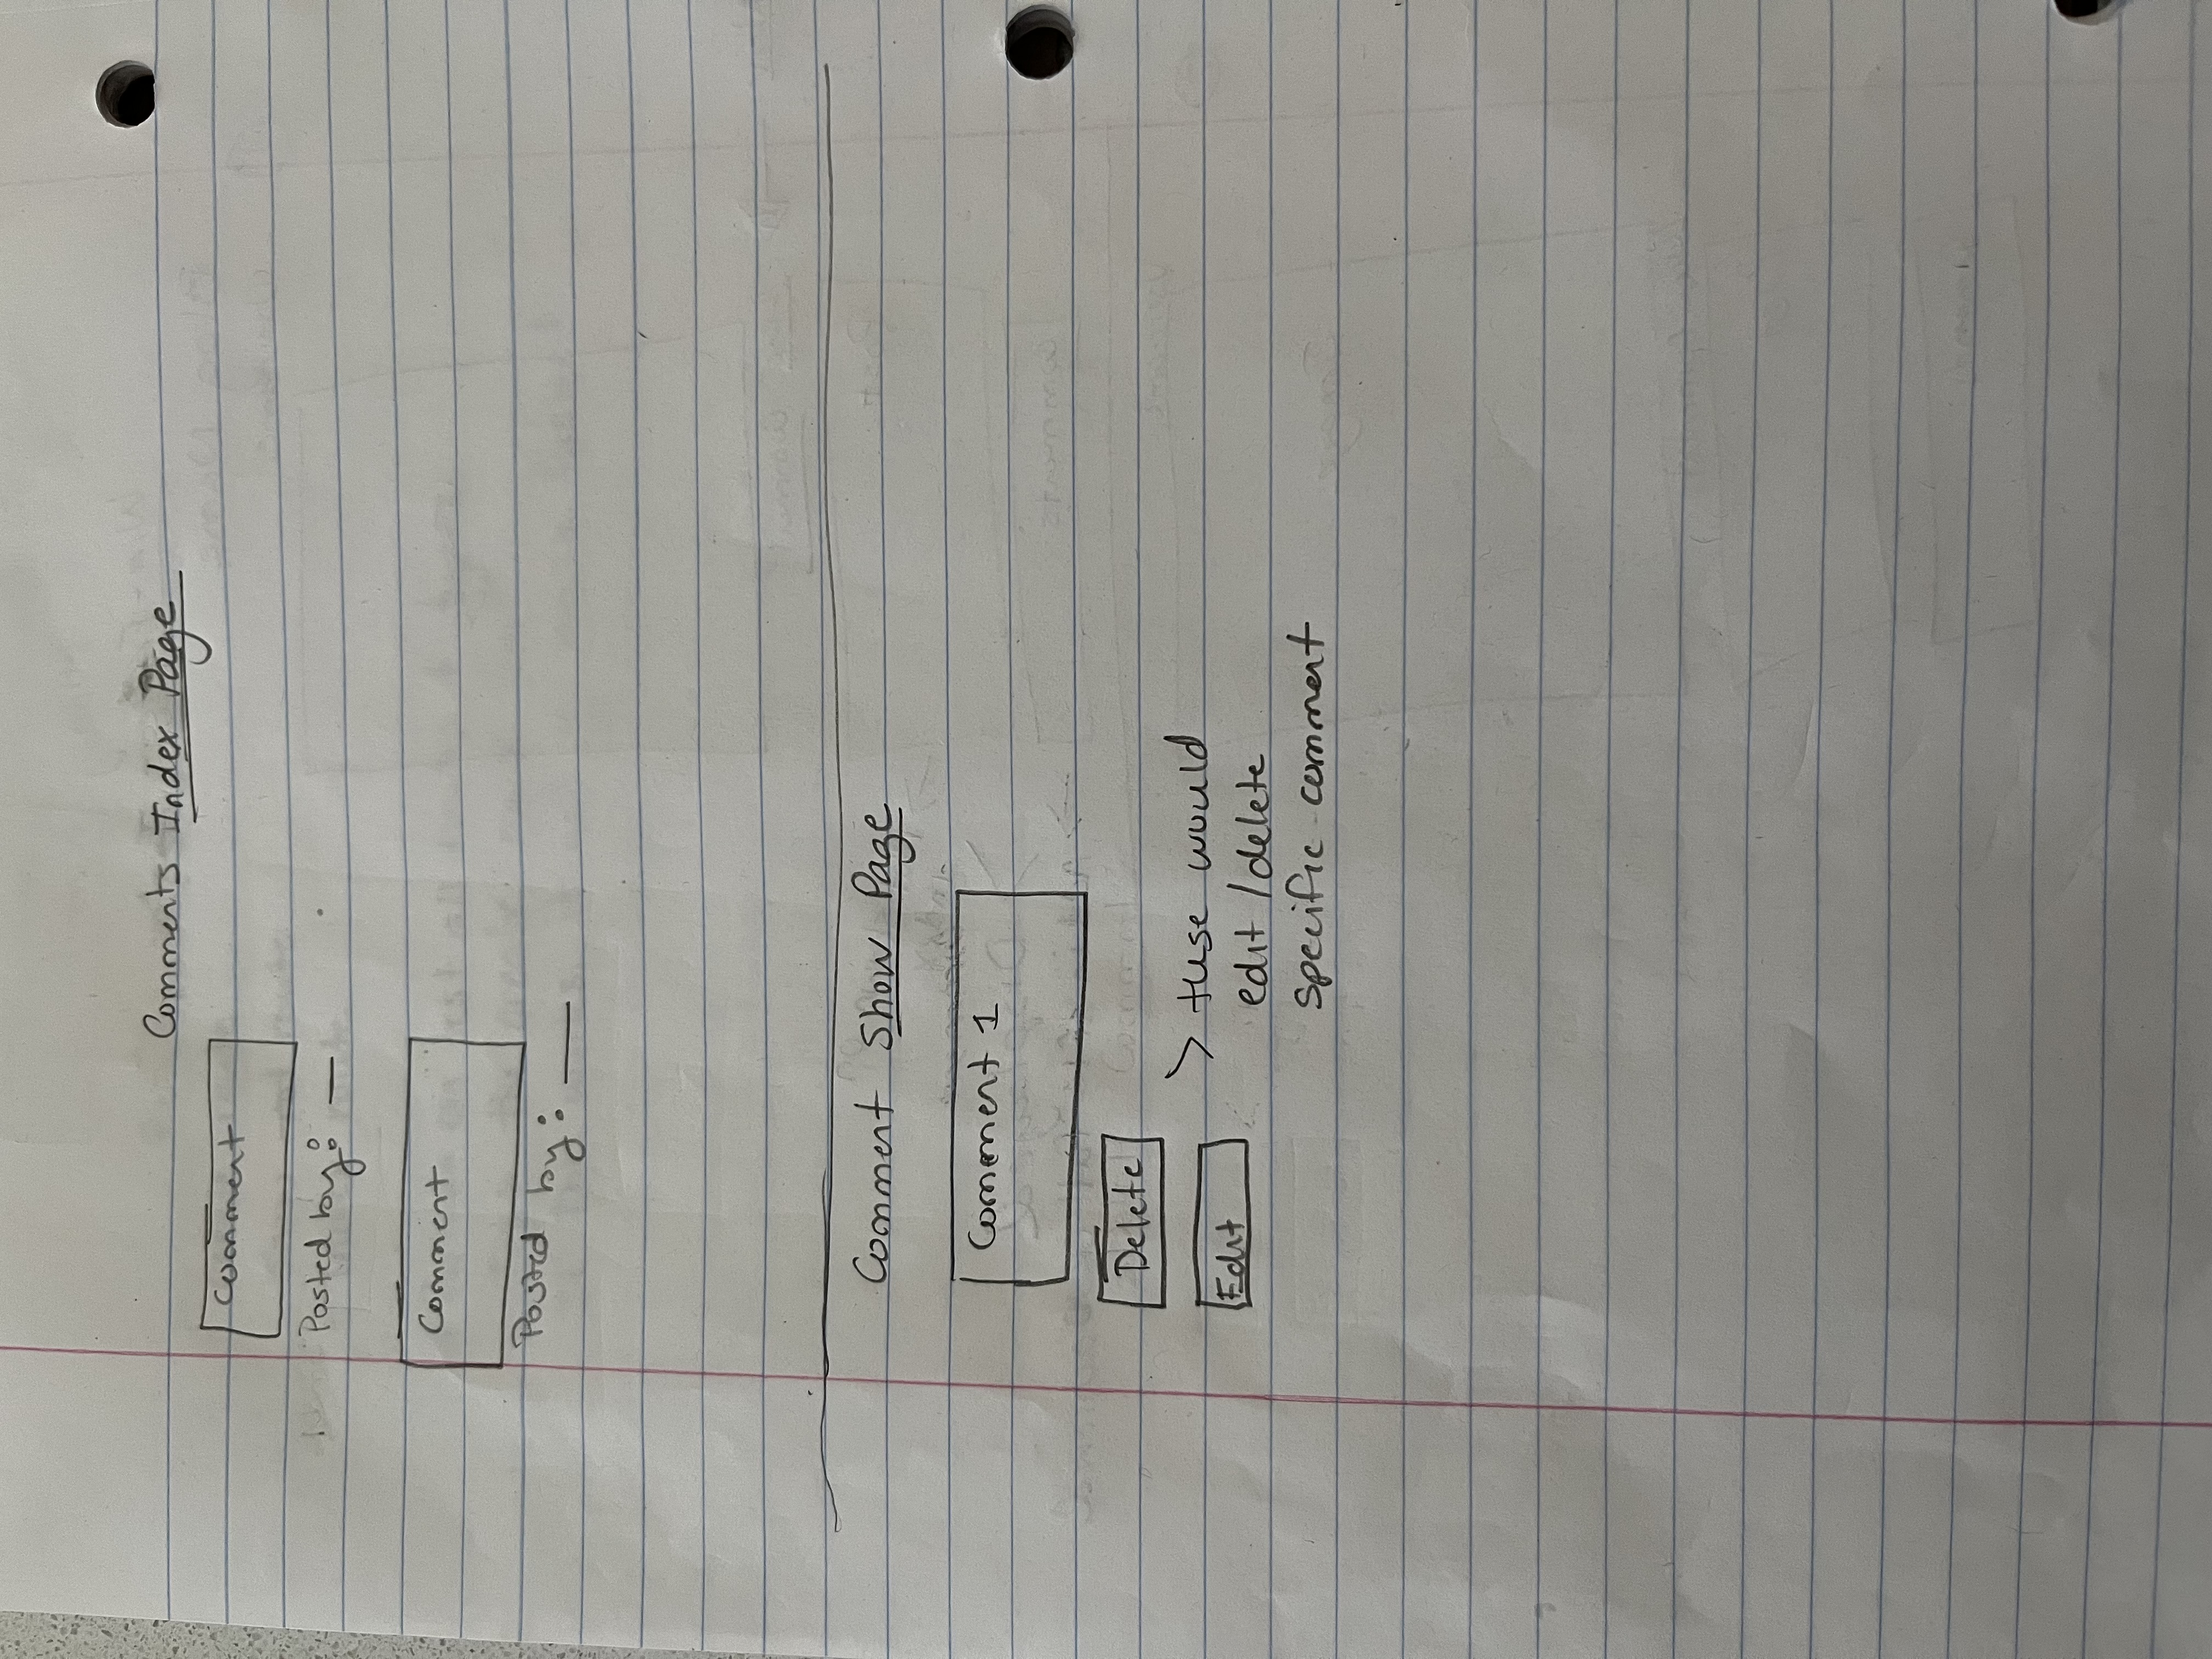 Comments Index Page
Comment
Posted by: __
Comment
Posted by: __
Comment Show Page
Comment 1
Delete
Edit
> tuse would
edit / delete
specific comment